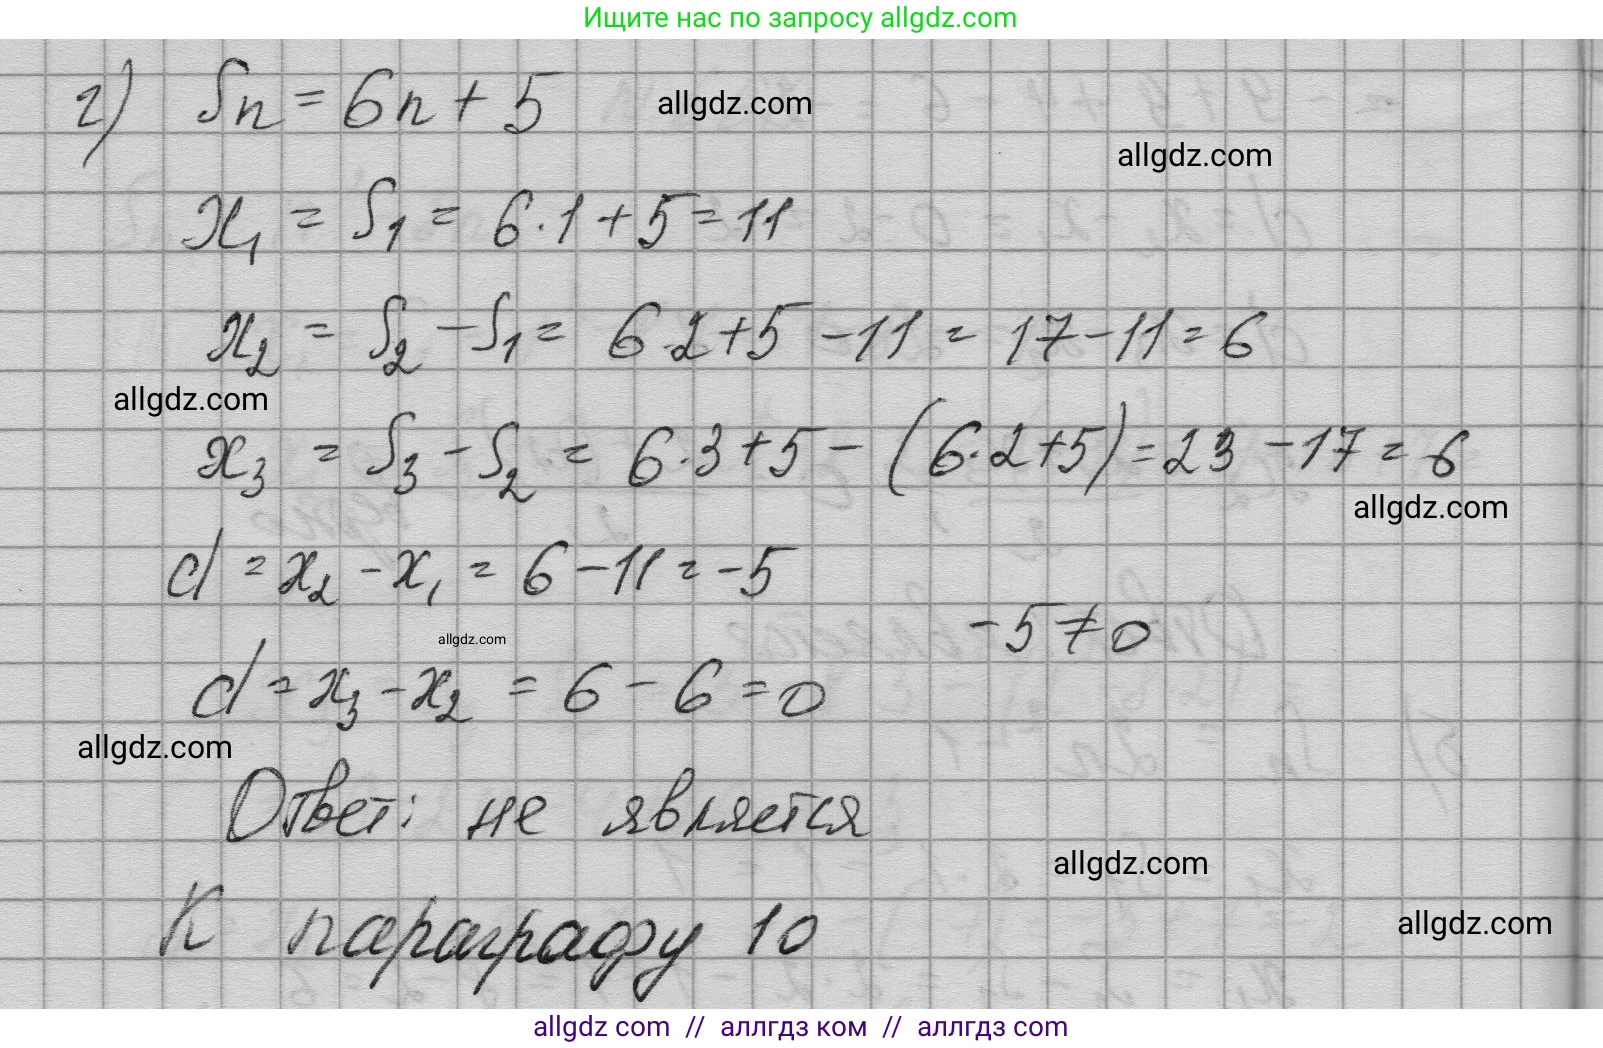 Ищите нас по запросу allgdz.com
г) Sn = 6n + 5
allgdz.com
allgdz.com
x₁ = S₁ = 6·1 + 5 = 11
x₂ = S₂ - S₁ = 6·2 + 5 - 11 = 17 - 11 = 6
allgdz.com
x₃ = S₃ - S₂ = 6·3 + 5 - (6·2 + 5) = 23 - 17 = 6
allgdz.com
d = x₂ - x₁ = 6 - 11 = -5
-5 ≠ 0
allgdz.com
d = x₃ - x₂ = 6 - 6 = 0
allgdz.com
Ответ: не является
allgdz.com
К параграфу 10
allgdz.com
allgdz com // аллгдз ком // аллгдз com